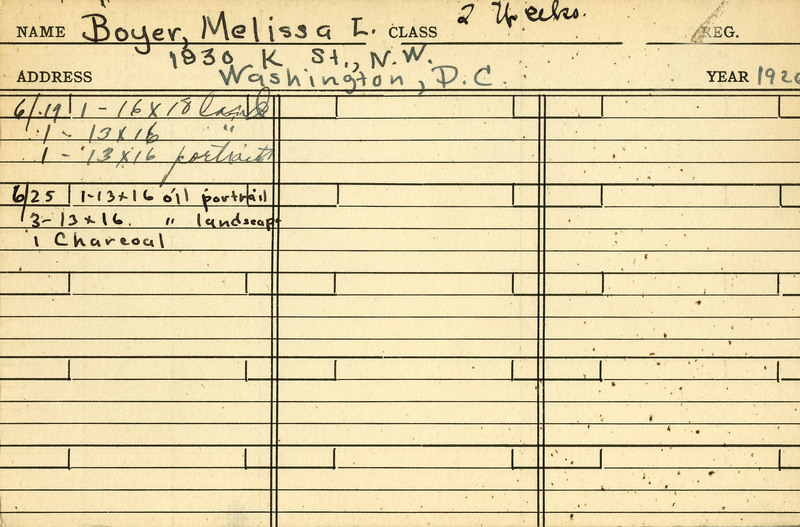 NAME Boyer, Melissa L. CLASS 2 Weeks. REG.
1930 K St., N.W.
ADDRESS Washington, D.C. YEAR 1920
6/19 1 - 16 x 18 land
1 - 13 x 16 "
1 - 13 x 16 portrait
6/25 1-13 x 16 oil portrait
3-13 x 16. " landscap
1 Charcoal